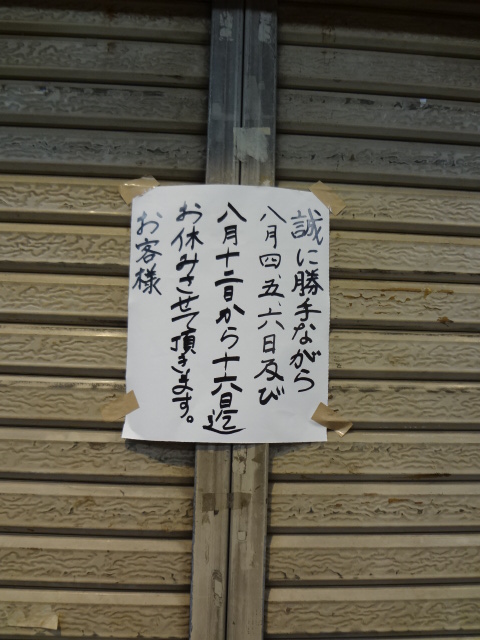 誠に勝手ながら
八月四、五、六日及び
八月十二日から十六日迄
お休みさせて頂きます。
お客様